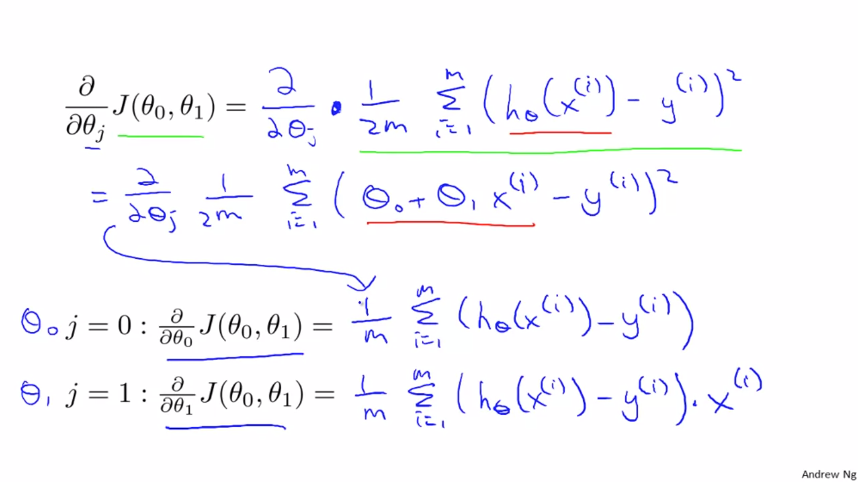 ∂/∂θⱼ J(θ₀, θ₁) = ∂/∂θⱼ · 1/2m Σᵢ₌₁ᵐ (h_θ(x⁽ⁱ⁾) − y⁽ⁱ⁾)²
= ∂/∂θⱼ 1/2m Σᵢ₌₁ᵐ (θ₀ + θ₁ x⁽ⁱ⁾ − y⁽ⁱ⁾)²
θ₀ j = 0 : ∂/∂θ₀ J(θ₀, θ₁) = 1/m Σᵢ₌₁ᵐ (h_θ(x⁽ⁱ⁾) − y⁽ⁱ⁾)
θ₁ j = 1 : ∂/∂θ₁ J(θ₀, θ₁) = 1/m Σᵢ₌₁ᵐ (h_θ(x⁽ⁱ⁾) − y⁽ⁱ⁾) · x⁽ⁱ⁾
Andrew Ng